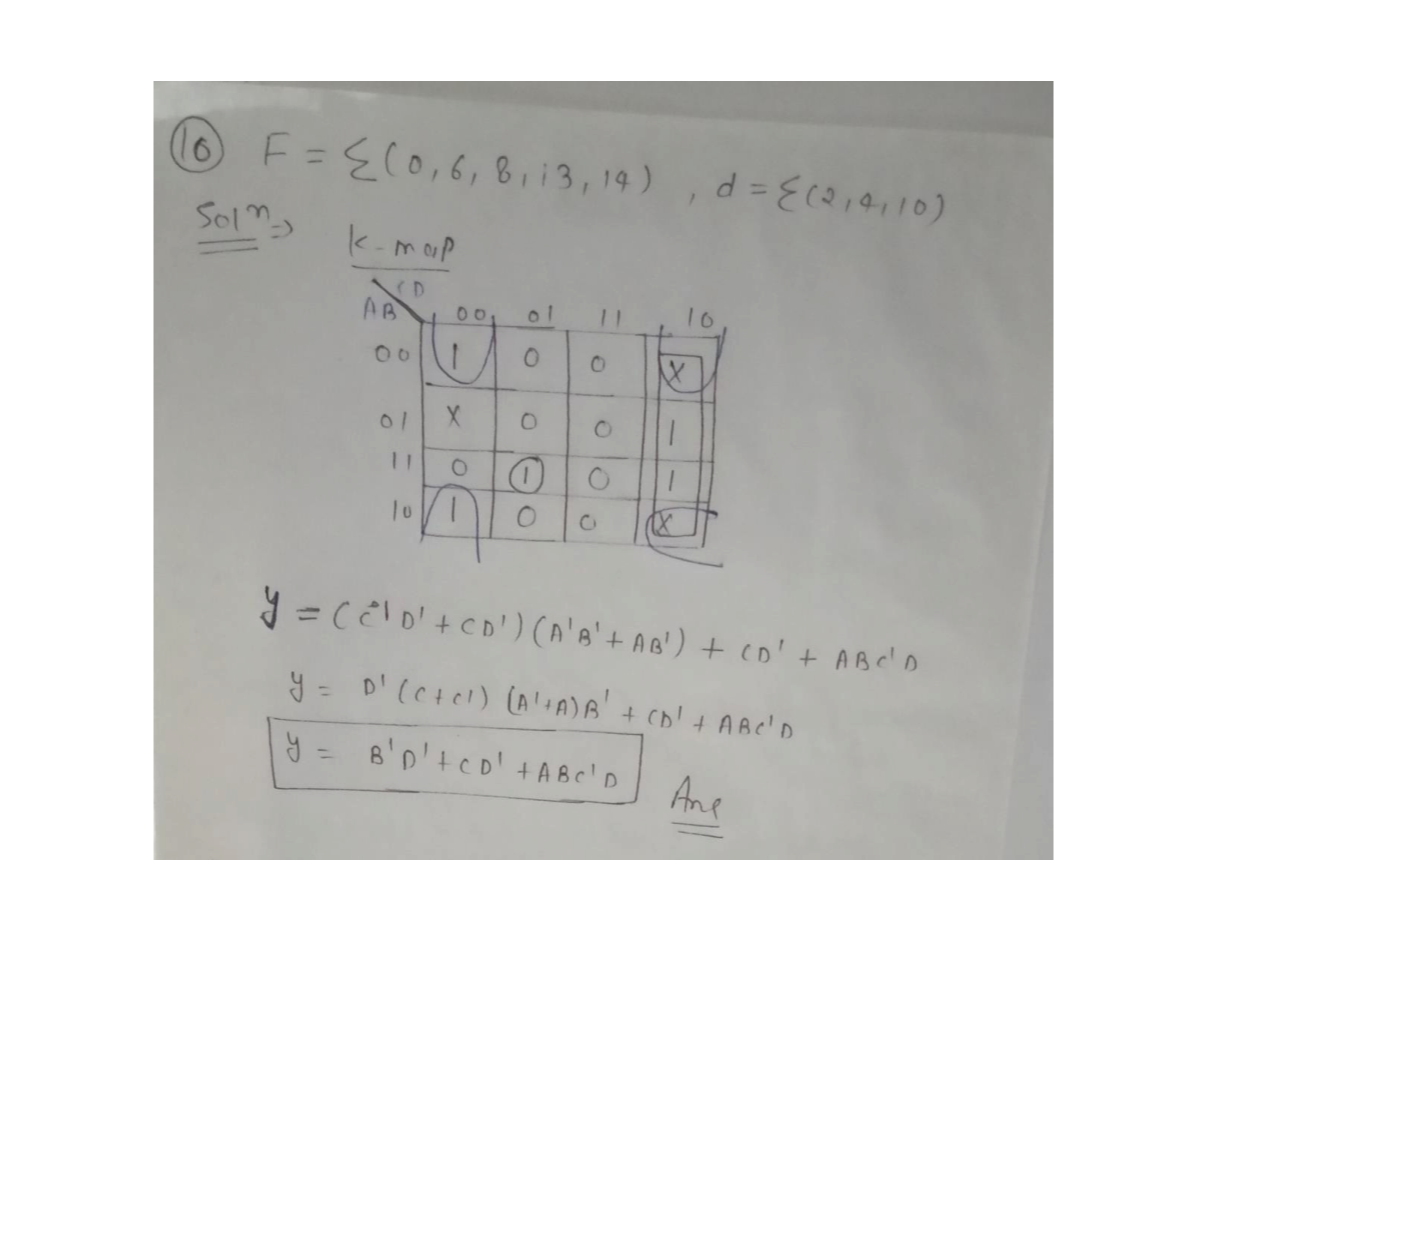 (10) F = Σ(0,6,8,13,14) , d = Σ(2,4,10)
Solⁿ ⇒
K-map
CD
AB 00 01 11 10
00 1 0 0 X
01 X 0 0 1
11 0 1 0 1
10 1 0 0 X
y = (C'D' + CD')(A'B' + AB') + CD' + ABC'D
y = D'(C+C')(A'+A)B' + CD' + ABC'D
y = B'D' + CD' + ABC'D
Ans